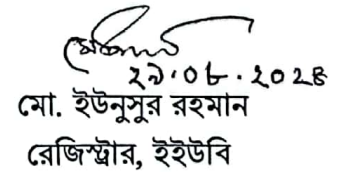 ২৯.০৮.২০২৪
মো. ইউনুসুর রহমান
রেজিস্ট্রার, ইইউবি